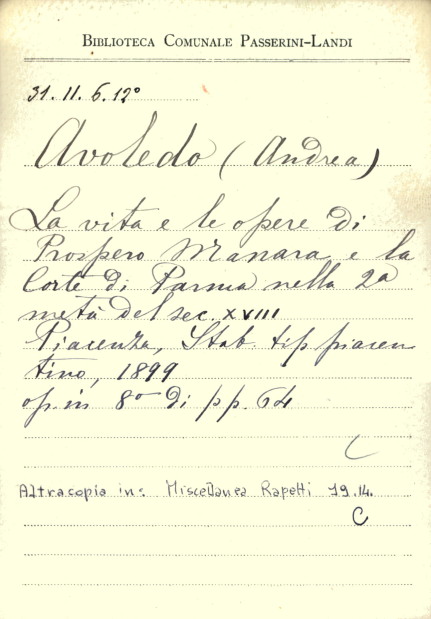 BIBLIOTECA COMUNALE PASSERINI-LANDI
31. II. 6. 12°
Avoledo (Andrea)
La vita e le opere di
Prospero Manara e la
Corte di Parma nella 2a
metà del sec. XVIII
Piacenza, Stab. tip. piacen
tino, 1899
op. in 8° di pp. 64
C
Altra copia in: Miscellanea Rapetti 19.14.
C